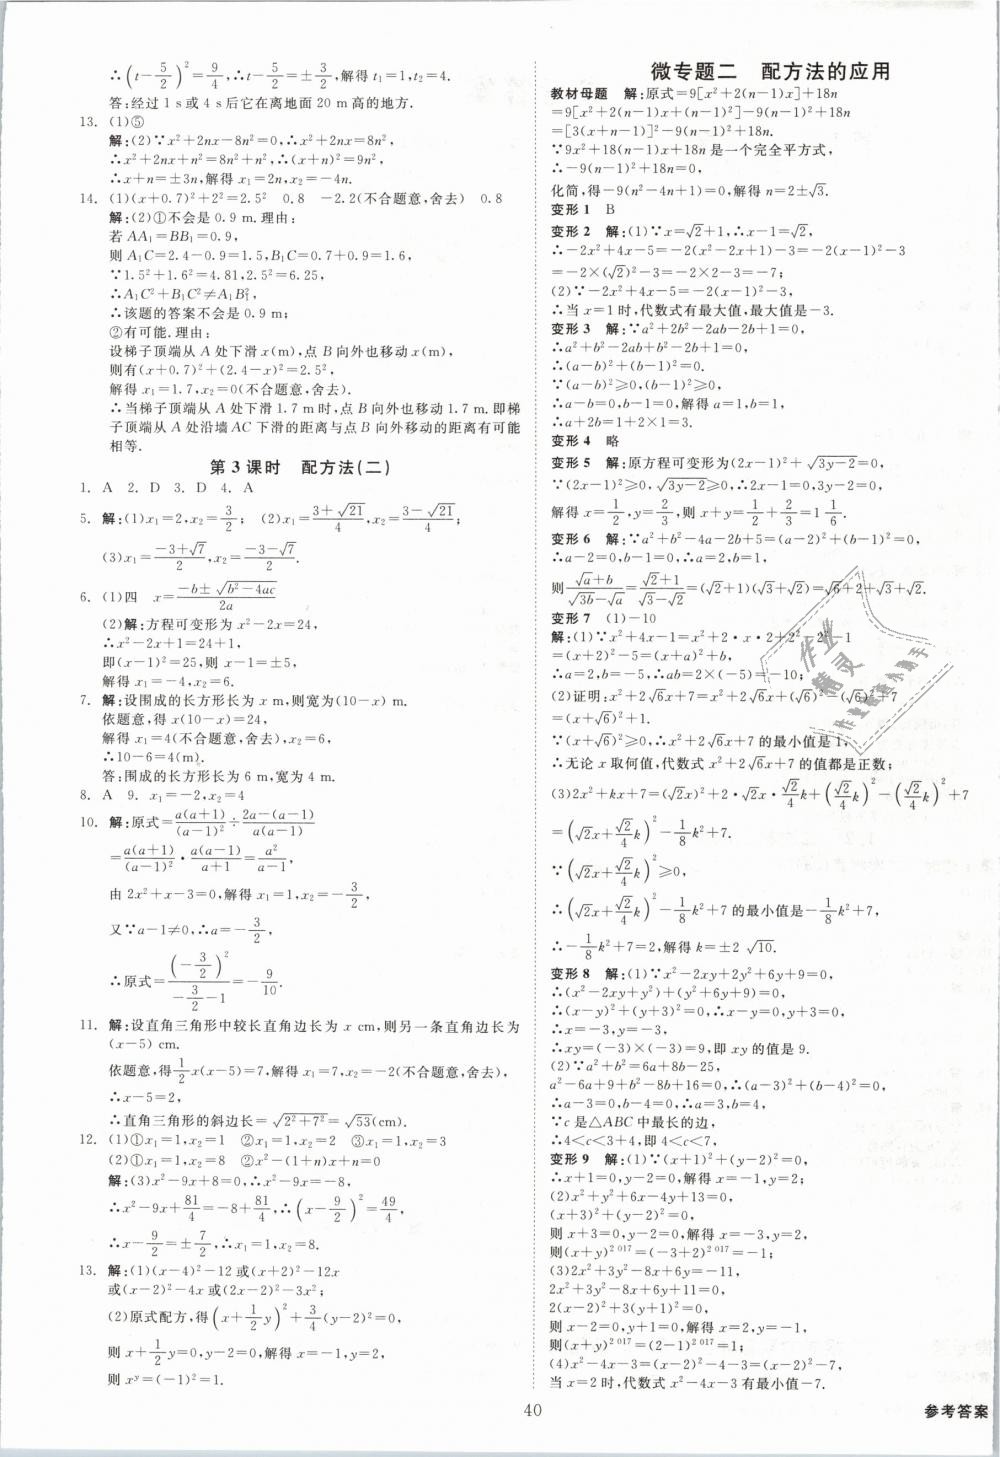 ∴(t-5/2)²=9/4,∴t-5/2=±3/2,解得 t₁=1,t₂=4.
答:经过 1 s或 4 s后它在离地面 20 m高的地方.
13. (1)⑤
解:(2)∵x²+2nx-8n²=0,∴x²+2nx=8n²,
∴x²+2nx+n²=8n²+n²,∴(x+n)²=9n²,
∴x+n=±3n,解得 x₁=2n,x₂=-4n.
14. (1)(x+0.7)²+2²=2.5² 0.8 -2.2(不合题意,舍去) 0.8
解:(2)①不会是 0.9 m.理由:
若 AA₁=BB₁=0.9,
则 A₁C=2.4-0.9=1.5,B₁C=0.7+0.9=1.6,
∵1.5²+1.6²=4.81,2.5²=6.25,
∴A₁C²+B₁C²≠A₁B₁²,
∴该题的答案不会是 0.9 m;
②有可能.理由:
设梯子顶端从 A 处下滑 x(m),点 B 向外也移动 x(m),
则有(x+0.7)²+(2.4-x)²=2.5²,
解得 x₁=1.7,x₂=0(不合题意,舍去).
∴当梯子顶端从 A 处下滑 1.7 m时,点 B 向外也移动 1.7 m.即梯
子顶端从 A 处沿墙 AC 下滑的距离与点 B 向外移动的距离有可能
相等.
第 3 课时 配方法(二)
1. A 2. D 3. D 4. A
5. 解:(1)x₁=2,x₂=3/2; (2)x₁=(3+√21)/4,x₂=(3-√21)/4;
(3)x₁=(-3+√7)/2,x₂=(-3-√7)/2.
6. (1)四 x=(-b±√(b²-4ac))/2a
(2)解:方程可变形为 x²-2x=24,
∴x²-2x+1=24+1,
即(x-1)²=25,则 x-1=±5,
解得 x₁=-4,x₂=6.
7. 解:设围成的长方形长为 x m,则宽为(10-x) m.
依题意,得 x(10-x)=24,
解得 x₁=4(不合题意,舍去),x₂=6,
∴10-6=4(m).
答:围成的长方形长为 6 m,宽为 4 m.
8. A 9. x₁=-2,x₂=4
10. 解:原式=a(a+1)/(a-1)²÷(2a-(a-1))/a(a-1)
=a(a+1)/(a-1)²·a(a-1)/(a+1)=a²/(a-1),
由 2x²+x-3=0,解得 x₁=1,x₂=-3/2,
又∵a-1≠0,∴a=-3/2,
∴原式=(-3/2)²/(-3/2-1)=-9/10.
11. 解:设直角三角形中较长直角边长为 x cm,则另一条直角边长为
(x-5) cm.
依题意,得1/2x(x-5)=7,解得 x₁=7,x₂=-2(不合题意,舍去),
∴x-5=2,
∴直角三角形的斜边长=√(2²+7²)=√53(cm).
12. (1)①x₁=1,x₂=1 ②x₁=1,x₂=2 ③x₁=1,x₂=3
(2)①x₁=1,x₂=8 ②x²-(1+n)x+n=0
解:(3)x²-9x+8=0,∴x²-9x=-8,
∴x²-9x+81/4=-8+81/4,∴(x-9/2)²=49/4,
∴x-9/2=±7/2,∴x₁=1,x₂=8.
13. 解:(1)(x-4)²-12 或(x+2)²-12x
或(x-2)²-4x 或(2x-2)²-3x²;
(2)原式配方,得(x+1/2y)²+3/4(y-2)²=0,
则 x+1/2y=0,y-2=0,解得 x=-1,y=2,
则 xʸ=(-1)²=1.
微专题二 配方法的应用
教材母题 解:原式=9[x²+2(n-1)x]+18n
=9[x²+2(n-1)x+(n-1)²]-9(n-1)²+18n
=[3(x+n-1)]²-9(n-1)²+18n.
∵9x²+18(n-1)x+18n 是一个完全平方式,
∴-9(n-1)²+18n=0.
化简,得-9(n²-4n+1)=0,解得 n=2±√3.
变形 1 B
变形 2 解:(1)∵x=√2+1,∴x-1=√2,
∴-2x²+4x-5=-2(x²-2x+1)-3=-2(x-1)²-3
=-2×(√2)²-3=-2×2-3=-7;
(2)∵-2x²+4x-5=-2(x-1)²-3,
∴当 x=1 时,代数式有最大值,最大值是-3.
变形 3 解:∵a²+2b²-2ab-2b+1=0,
∴a²+b²-2ab+b²-2b+1=0,
∴(a-b)²+(b-1)²=0.
∵(a-b)²≥0,(b-1)²≥0,
∴a-b=0,b-1=0,解得 a=1,b=1,
∴a+2b=1+2×1=3.
变形 4 略
变形 5 解:原方程可变形为(2x-1)²+√(3y-2)=0,
∵(2x-1)²≥0,√(3y-2)≥0,∴2x-1=0,3y-2=0,
解得 x=1/2,y=2/3,则 x+y=1/2+2/3=1 1/6.
变形 6 解:∵a²+b²-4a-2b+5=(a-2)²+(b-1)²=0,
∴a-2=0,b-1=0,∴a=2,b=1,
则(√a+b)/(√3b-√a)=(√2+1)/(√3-√2)=(√2+1)(√3+√2)=√6+2+√3+√2.
变形 7 (1)-10
解:(1)∵x²+4x-1=x²+2·x·2+2²-2²-1
=(x+2)²-5=(x+a)²+b,
∴a=2,b=-5,∴ab=2×(-5)=-10;
(2)证明:x²+2√6x+7=x²+2√6x+(√6)²-(√6)²+7
=(x+√6)²+1.
∵(x+√6)²≥0,∴x²+2√6x+7 的最小值是 1,
∴无论 x 取何值,代数式 x²+2√6x+7 的值都是正数;
(3)2x²+kx+7=(√2x)²+2·√2x·√2/4k+(√2/4k)²-(√2/4k)²+7
=(√2x+√2/4k)²-1/8k²+7.
∵(√2x+√2/4k)²≥0,
∴(√2x+√2/4k)²-1/8k²+7 的最小值是-1/8k²+7,
∴-1/8k²+7=2,解得 k=±2√10.
变形 8 解:(1)∵x²-2xy+2y²+6y+9=0,
∴(x²-2xy+y²)+(y²+6y+9)=0,
∴(x-y)²+(y+3)²=0,∴x-y=0,y+3=0,
∴x=-3,y=-3,
∴xy=(-3)×(-3)=9,即 xy 的值是 9.
(2)∵a²+b²=6a+8b-25,
a²-6a+9+b²-8b+16=0,∴(a-3)²+(b-4)²=0,
∴a-3=0,b-4=0,∴a=3,b=4,
∵c 是△ABC 中最长的边,
∴4<c<3+4,即 4<c<7,
变形 9 解:(1)∵(x+1)²+(y-2)²=0,
∴x+1=0,y-2=0,解得 x=-1,y=2;
(2)x²+y²+6x-4y+13=0,
(x+3)²+(y-2)²=0,
则 x+3=0,y-2=0,解得 x=-3,y=2,
则(x+y)²⁰¹⁷=(-3+2)²⁰¹⁷=-1;
(3)2x²+3y²-8x+6y=-11,
2x²+3y²-8x+6y+11=0,
2(x-2)²+3(y+1)²=0,
则 x-2=0,y+1=0,解得 x=2,y=-1,
则(x+y)²⁰¹⁷=(2-1)²⁰¹⁷=1;
(4)x²-4x-3=(x-2)²-4-3=(x-2)²-7,
当 x=2 时,代数式 x²-4x-3 有最小值-7.
作业
精灵
作业检查小助手
40
参考答案